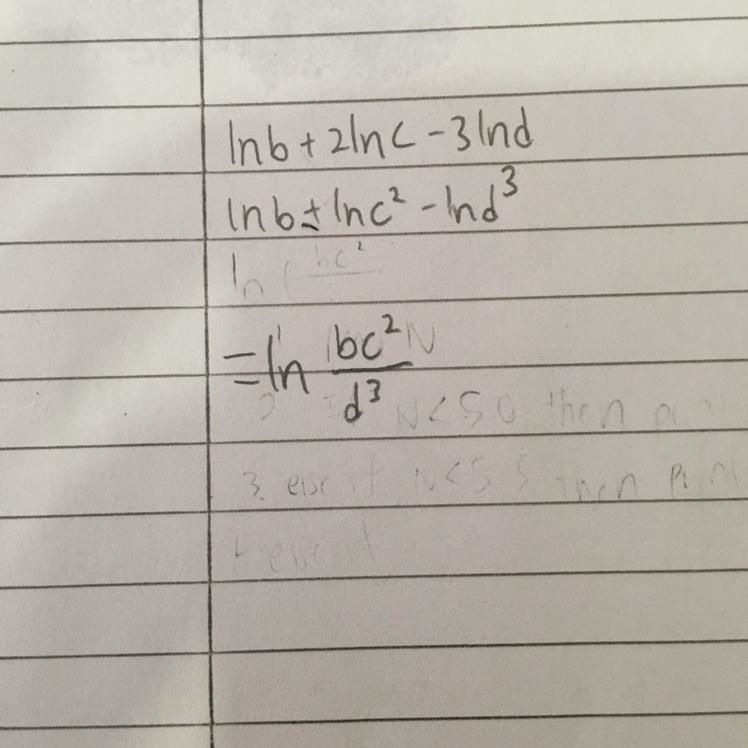 lnb + 2lnc - 3lnd
lnb + lnc² - lnd³
ln ( bc²
= ln bc²/d³
N<50 then
3. else if N<55 then print